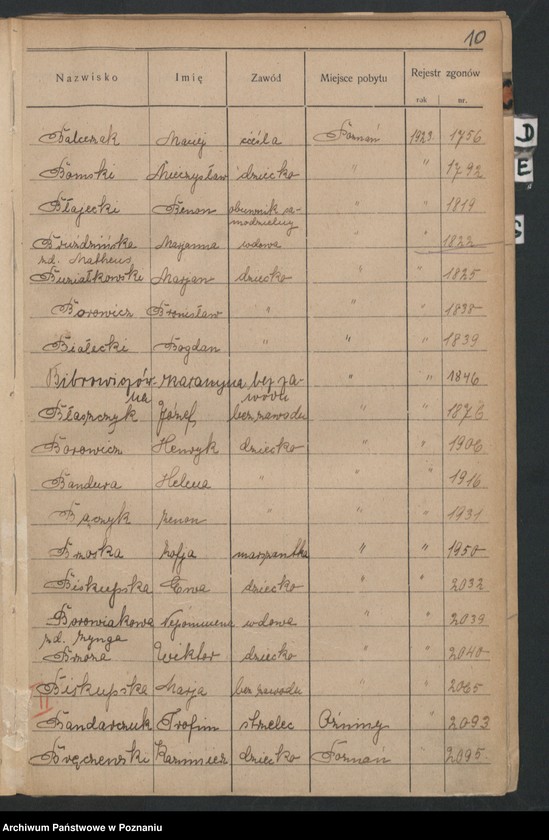 10
Nazwisko Imię Zawód Miejsce pobytu Rejestr zgonów
rok nr.
Balczak Maciej cieśla Poznań 1923 1756
Bomski Mieczysław dziecko " " 1792
Błajecki Benon obuwnik sa- " " 1819
modzielny
Bruzdzińska Marjanna wdowa " " 1822
zd. Matheus
Buziałkowski Marjan dziecko " " 1825
Borowicz Bronisław " " " 1838
Białecki Bogdan " " " 1839
Bibrowiczów- Maramyna bez za- " " 1846
na wodu
Błaszczyk Józef bez zawodu " " 1876
Borowicz Henryk dziecko " " 1906
Bandura Helena " " " 1916
Bączyk Zenon " " " 1931
Brzoska Zofja " " 1950
Biskupska Ewa dziecko " " 2032
Borowiakowa Nepomucena wdowa " " 2039
zd. Zynga
Brzoza Wiktor dziecko " " 2040
Biskupska Marja bez zawodu " " 2065
Bandarczuk Trofim strzelec " 2093
Bręczewski Kazimierz dziecko Poznań " 2095
D
E
S
Archiwum Państwowe w Poznaniu